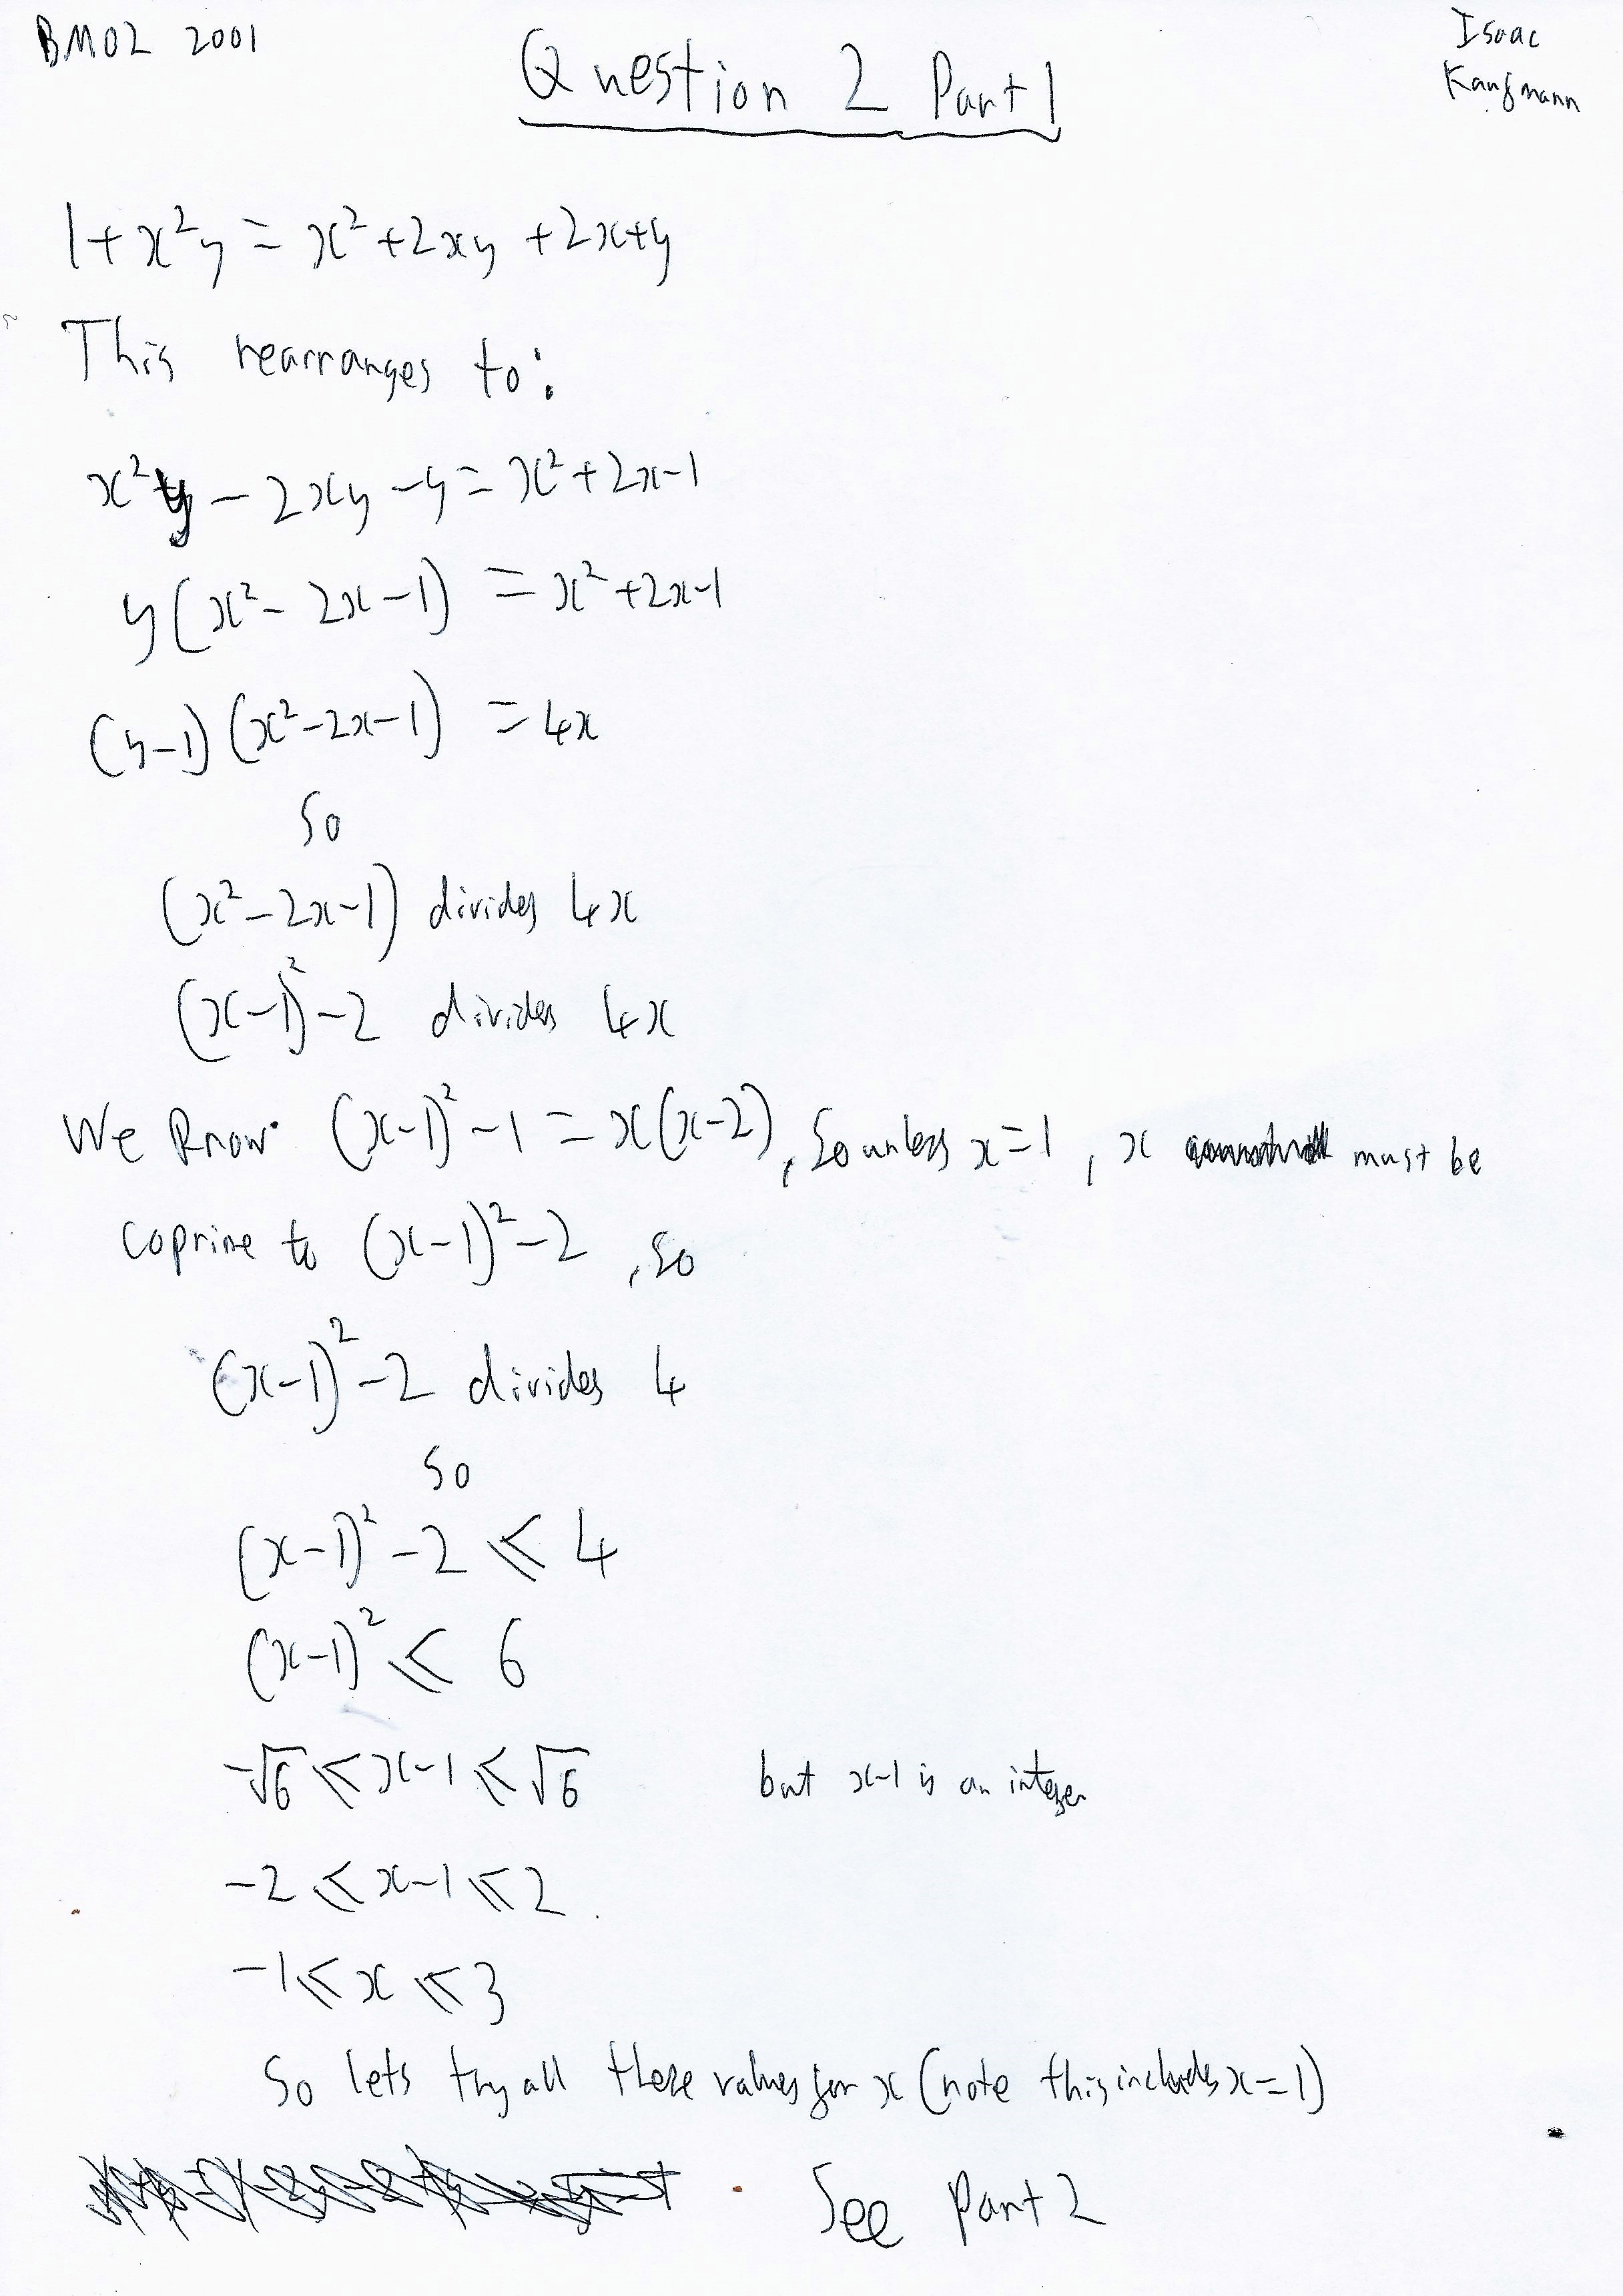 BMO2 2001
Question 2 Part 1
Isaac
Kaufmann
1+x²y = x²+2xy+2x+y
This rearranges to:
x²y - 2xy - y = x²+2x-1
y(x²-2x-1) = x²+2x-1
(y-1)(x²-2x-1) = 4x
So
(x²-2x-1) divides 4x
(x-1)²-2 divides 4x
We know (x-1)²-1 = x(x-2), so unless x=1, x must be
coprime to (x-1)²-2, so
(x-1)²-2 divides 4
so
(x-1)²-2 ⩽ 4
(x-1)² ⩽ 6
-√6 ⩽ x-1 ⩽ √6 but x-1 is an integer
-2 ⩽ x-1 ⩽ 2.
-1 ⩽ x ⩽ 3
So lets try all these values for x (note this includes x=1)
See part 2